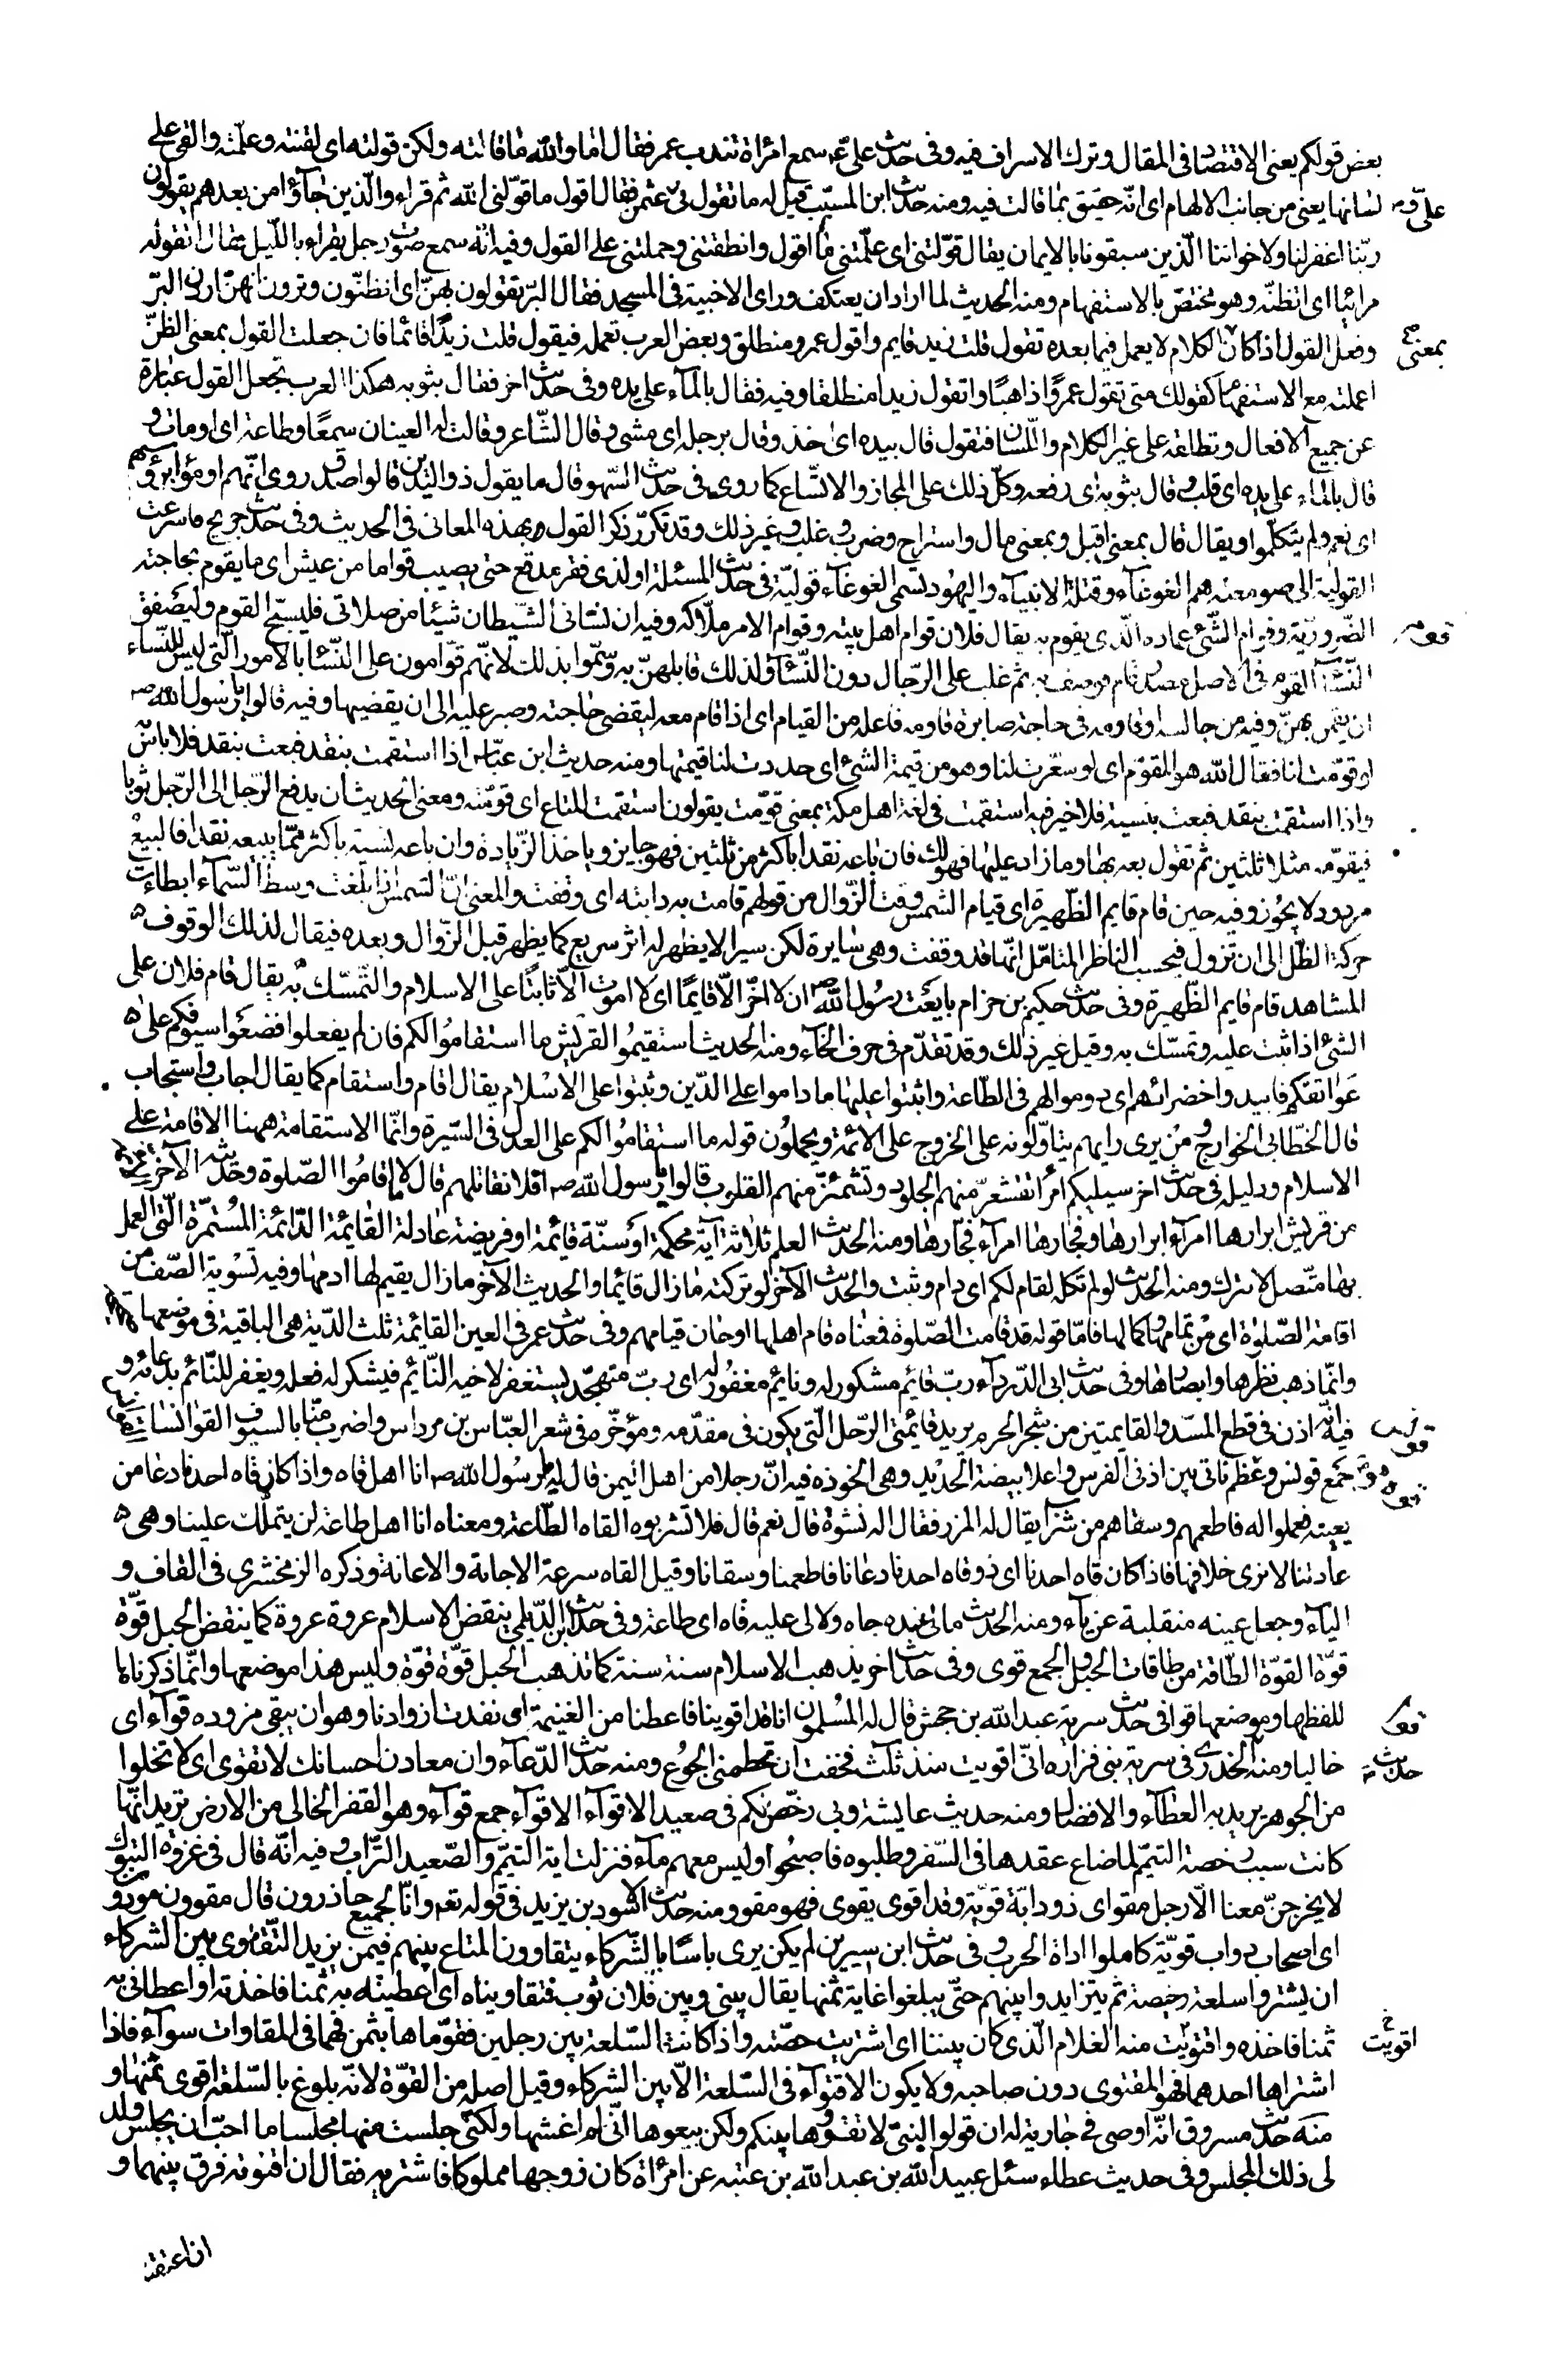 بعض قولكم يعنى الاقتصاد فى المقال وترك الاسراف فيه وفى حديث علىّ ع سمع امراة تندب عمر فقال اما والله ما قالته ولكن قولته اى لقنته وعلّمته والقى على
لسانها يعنى من جانب الالهام اى انّه حقيق بما قالت فيه ومنه حديث ابن المسيّب قيل له ما تقول فى عثمن فقال اقول ما قوّلنى الله ثم قراء والّذين جآؤا من بعدهم يقولون
ربّنا اغفر لنا ولاخواننا الّذين سبقونا بالايمان يقال قوّلتنى اى علّمتنى ما اقول وانطقتنى وحملتنى على القول وفيه انّه سمع صوت رجل يقراء بالليل فقال اتقوله
مرائيا اى اتظنّه وهو مختصّ بالاستفهام ومنه الحديث لما اراد ان يعتكف وراى الاخبية فى المسجد فقال البرّ تقولون بهنّ اى اتظنّون وترون انهنّ اردن البرّ
وفعل القول اذا كان بمعنى الكلام لا يعمل فيما بعده تقول قلت زيد قايم واقول عمرو منطلق وبعض العرب تعمله فيقول قلت زيدًا قائما فان جعلت القول بمعنى الظنّ
اعملته مع الاستفهام كقولك متى تقول عمرًوا ذاهبًا واتقول زيدا منطلقا وفيه فقال بالمآء على يده وفى حديث اخر فقال بثوبه هكذا العرب تجعل القول عبارة
عن جميع الافعال وتطلقه على غير الكلام واللّسان فتقول قال بيده اى خذ وقال برجله اى مشى وقال الشّاعر وقالت له العينان سمعًا وطاعة اى اومات و
قال بالماء على يده اى قلب وقال بثوبه اى رفعه وكلّ ذلك على المجاز والاتّساع كما روى فى حديث السّهو قال ما يقول ذو اليدين قالوا صدق روى انّهم اومؤا برؤسهم
اى نعم ولم يتكلّموا ويقال قال بمعنى اقبل وبمعنى مال واستراح وضرب وغلب وغير ذلك وقد تكرّر ذكر القول بهذه المعانى فى الحديث وفى حديث جريج فاسرعت
القوليّة الى صومعته هم الغوغآء وقتلة الانبيآء واليهود تسمى الغوغآء قوليّة فى حديث المسئلة او لذى فقر مدقع حتى يصيب قواما من عيش اى ما يقوم بحاجته
الضّروريّة وقوام الشّئ عماده الّذى يقوم به يقال فلان قوام اهل بيته وقوام الامر ملاكه وفيه ان نسّانى الشّيطان شيئا من صلاتى فليسبّح القوم وليصفق
النّسآ القوم فى الاصل مصدر قام فوصف به ثم غلب على الرّجال دون النّسآ ولذلك قابلهنّ به وسمّوا بذلك لانّهم قوّامون على النّسآ بالامور الّتى ليس للنّساء
ان يقمن بهنّ وفيه من جالسه او قاومه فى حاجة صابره قاومه فاعله من القيام اى اذا قام معه ليقضى حاجته وصبر عليه الى ان يقضيها وفيه قالوا يا رسول الله ص
لو قوّمت لنا فقال الله هو المقوّم اى لو سعّرت لنا وهو من قيمة الشئ اى حددت لنا قيمتها ومنه حديث ابن عبّاس اذا استقمت بنقد فبعت بنقد فلا باس
واذا استقمت بنقد فبعت بنسيئة فلا خير فيه استقمت فى لغة اهل مكة بمعنى قوّمت يقولون استقمت المتاع اى قوّمته ومعنى الحديث ان يدفع الرّجل الى الرّجل ثوبا
فيقوّمه مثلا ثلثين ثم تقول بعه بها وما زاد عليها فهو لك فان باعه نقدا باكثر من ثلثين فهو جايز وياخذ الزّيادة وان باعه نسئة باكثر ممّا يبيعه نقدا فالبيع
مردود لا يجوز وفيه حين قام قايم الظّهيرة اى قيام الشمس وقت الزّوال من قولهم قامت به دابته اى وقفت والمعنى انّ الشمس اذا بلغت وسط السّمآء ابطات
حركة الظّل الى ان تزول فيحسب الناظر المتامّل انّها قد وقفت وهى سايرة لكن سيرا لا يظهر له اثر سريع كما يظهر قبل الزّوال وبعده فيقال لذلك الوقوف
المشاهد قام قايم الظّهيرة وفى حديث حكيم بن حزام بايعت رسول الله ص ان لا اخرّ الّا قايمًا اى لا اموت الّا ثابتًا على الاسلام والتّمسّك به يقال قام فلان على
الشئ اذا ثبت عليه وتمسّك به وقيل غير ذلك وقد تقدّم فى حرف الخآء ومنه الحديث استقيمُوا لقريش ما استقامُوا لكم فان لم يفعلوا فضعَوا سيوفكم على
عَواتقكم فابيدوا خضرائهم اى دوموا لهم فى الطّاعة واثبتوا عليها ما داموا على الدّين وثبتوا على الاسْلام يقال اقام واستقام كما يقال اجاب واستجاب
قال الخطّابى الخوارج ومن يرى رايهم يتاوّلونه على الخروج على الائمة ويحملون قوله ما استقامُوا لكم على العدل فى السّيرة وانّما الاستقامة ههنا الاقامة على
الاسلام ودليله فى حديث اخر سيليكم امرآ تقشعرّ منهم الجلود وتشمئزّ منهم القلوب قالوا يا رسول الله ص افلا نقاتلهم قال لا ما اقامُوا الصّلوة وحديثه الآخر الائمة
من قريش ابرارها امرآء ابرارها وفجّارها امرآء فجّارها ومنه الحديث العلم ثلاثة آية محكمة او سنّة قائمة او فريضة عادلة القائمة الدّائمة المُستمرّة الّتى العمل
بها متّصل لا يترك ومنه الحديث لو لم تكله لقام لكم اى دام وثبت والحديث الآخر لو تركته ما زال قائما والحديث الآخر ما زال يقيم لها ادمها وفيه تسْوية الصّف من
اقامة الصّلوٰة اى من تمامها وكمالها فامّا قوله قد قامت الصّلوة فمعناه قام اهلها او حان قيامهم وفى حديث عمر فى العين القائمة ثلث الدّية هى الباقية فى موضعها
وانّما ذهب نظرها وابصارها وفى حديث ابى الدّردآء ربّ قائم مشكور له ونايم مغفورٌ له اى ربّ متهجّد يستغفر لاخيه النّائم فيشكر له فعله ويغفر للنّائم بدعائه و
فيه انّه اذن فى قطع المسّد والقايمتين من شجر الحرم يريد قائمتى الرّحل الّتى يكون فى مقدّمه ومؤخّره فى شعر العبّاس بن مرداس واضرب منّا بالسيوف القوانسا
جمَع قونس وعظم ناتى بين اذنى الفرس واعلا بيضة الحديد وهى الخوذه فيه انّ رجلا من اهل اليمن قال يا رسُول الله ص انا اهل قاه واذا كان قاه احدنا دعا من
يعينه فعملوا له فاطعمهم وسقاهم من شراب يقال له المزر فقال اله نشوة قال نعم قال فلا تشربوه القاه الطّاعة ومعناه انا اهل طاعة لن يتملّك علينا وهى
عادتنا لا نرى خلافها فاذا كان قاه احدنا اى ذو قاه احدنا دعانا فاطعمنا وسقانا وقيل القاه سرعة الاجابة والاعانة وذكره الزمخشرى فى القاف و
اليآء وجعل عينه منقلبة عن يآء ومنه الحديث مالى عنده جاه ولا لى عليه قاه اى طاعة وفى حديث ابن الدّيلمى ينقض الاسلام عروة عروة كما ينقض الحبل قوّة
قوّة القوّة الطّاقة من طاقات الحبل والجمع قوى وفى حديث اخر يذهب الاسلام سنة سنة كما تذهب الحبل قوّة قوّة وليس هذا موضعها وانّما ذكرناها
للفظها وموضعها قوا فى حديث سرية عبد الله بن جحش قال له المُسلمون انا قد اقوينا فاعطنا من الغنيمة اى نفدت ازوادنا وهو ان يبقى مزوده قوآء اى
خاليا ومنه حديث الخدرى فى سرية بنى فزاره انّى اقويت منذ ثلث فخفت ان تحطمنى الجُوع ومنه حديث الدّعآء وان معادن احسانك لا تقوى اى لا تخلوا
من الجوهر يريد به العطآء والافضال ومنه حديث عايشة وبى رخّص لكم فى صعيد الاقوآء الاقوآء جمع قوآء وهو القفر الخالى من الارض تريد انّها
كانت سبب رخصة التيمّم لما ضاع عقدها فى السّفر وطلبوه فاصبحُوا وليس معهم مآء فنزلت اية التيمّم والصّعيد التّراب وفيه انّه قال فى غزوة التبوك
لا يخرجنّ معنا الّا رجل مقو اى ذو دابّة قويّة وقد اقوى يقوى فهو مقو ومنه حديث الاسود بن يزيد فى قوله تع وانّا لجميع حاذرون قال مقوون مودون
اى اصحاب دواب قويّة كاملوا اداة الحرب وفى حديث ابن سيرين لم يكن يرى باسًا بالشّركاء يتقاوون المتاع بينهم فيمن يزيد التّقاوى بين الشركاء
ان يشتروا سلعة رخيصة ثم يتزايدوا بينهم حتّى يبلغوا غاية ثمنها يقال بينى وبين فلان ثوب فتقاويناه اى اعطيته به ثمنا فاخذته او اعطانى به
ثمنا فاخذه واقتويت منه الغلام الّذى كان بيننا اى اشتريت حصّته واذا كانت السّلعة بين رجلين فقوّماها بثمن فهما فى المقاوات سوآء فاذا
اشتراها احدهما فهو المقتوى دون صاحبه ولا يكون الاقتوآء فى السّلعة الّا بين الشركاء وقيل اصله من القوّة لانّه بلوغ بالسّلعة اقوى ثمنها و
منه حديث مسروق انّه اوصى فى جارية له ان قولوا لبنىّ لا تقتووها بينكم ولكن بيعوها انّى لم اغشها ولكنّى جلست منها مجلسا ما احبّ ان يجلس ولد
لى ذلك المجلس وفى حديث عطاء سئل عبيد الله بن عبد الله بن عتبه عن امرأة كان زوجها مملوكا فاشتريه فقال ان اقتوته فرق بينهما و
ان اعتقته
على
بمعنى
قوم
قونس
قوه
قوا
حديث
اقويت